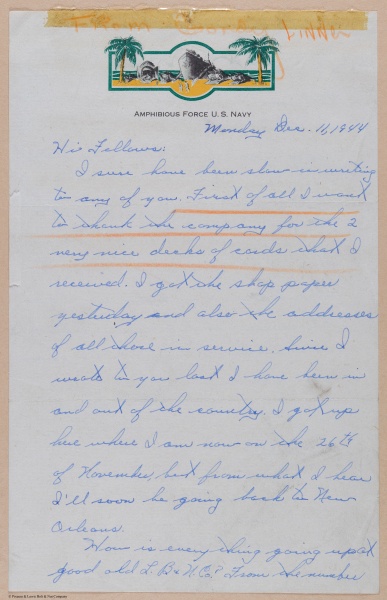 From Gordon Linder
AMPHIBIOUS FORCE U.S. NAVY
Monday Dec. 11, 1944
Hi Fellows:
I sure have been slow in writing
to any of you. First of all I want
to thank the company for the 2
very nice decks of cards that I
received. I got the shop paper
yesterday and also the addresses
of all those in service. Since I
wrote to you last I have been in
and out of the country. I got up
here where I am now on the 26th
of November, but from what I hear
I'll soon be going back to New
Orleans.
How is every thing going up at
good old L. B & N. Co? From the number